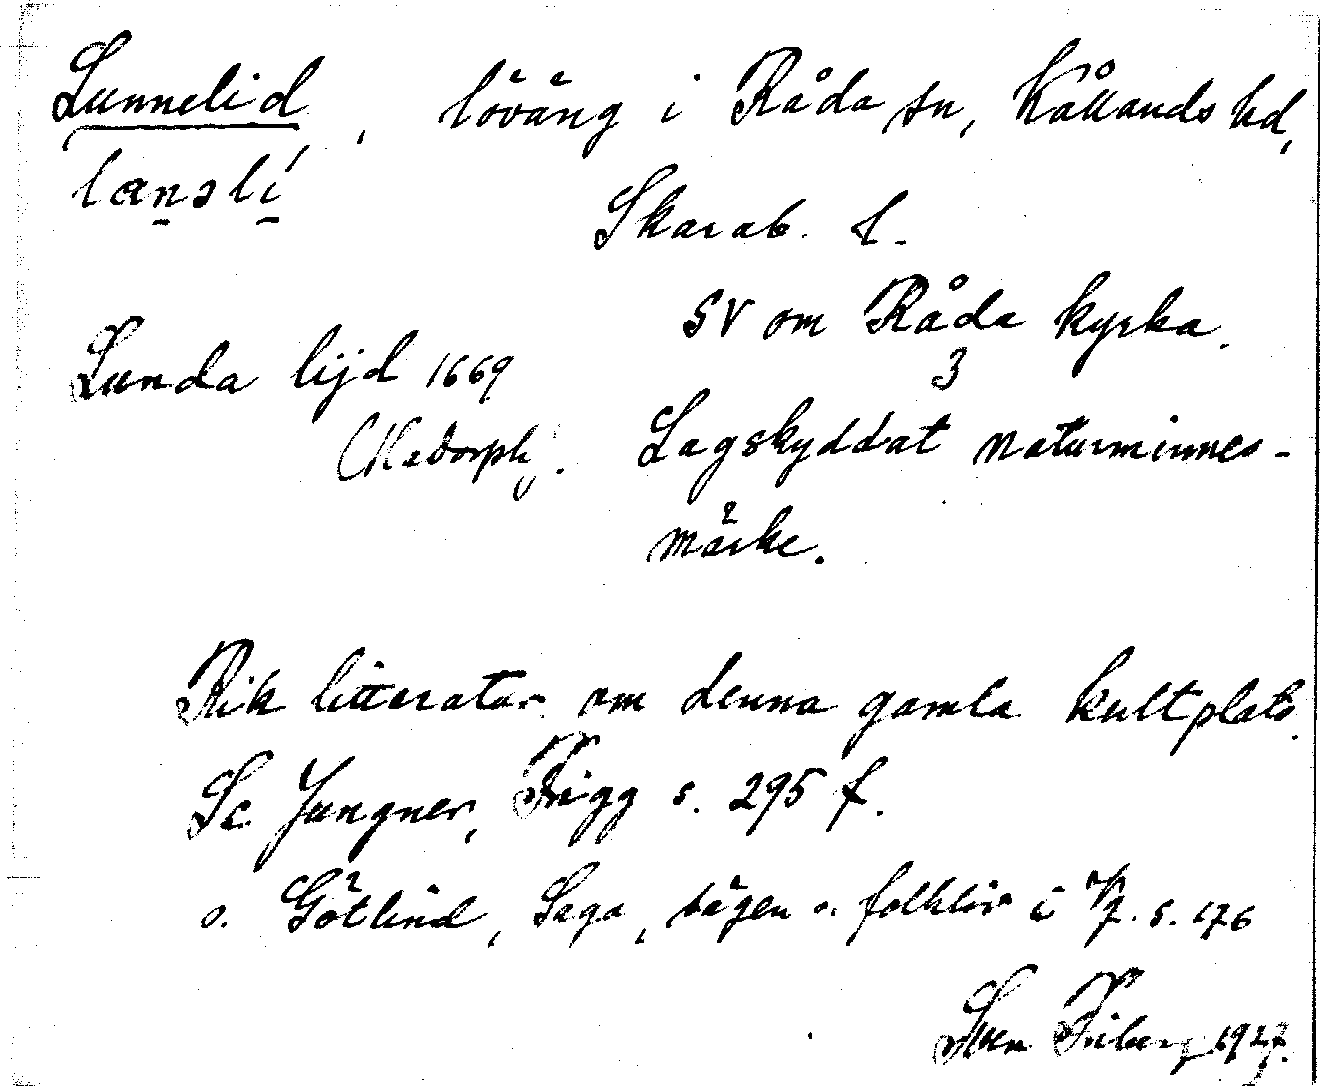 Lunnelid, löväng i Råda sn, Kållands hd,
lænslí
Skarab. l.
SV om Råda kyrka.
3
Lunda lijd 1669
Lagskyddat naturminnes-
märke.
Rik litteratur om denna gamla kultplats.
Se Jungner, Frigg s. 295 f.
o. Götlind, Saga, sägen o. folkliv i Vg. s. 176
Sven Friberg 1927.